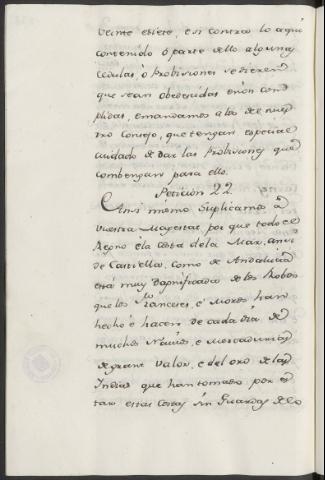 veinte e siete, e si contra lo aqui
contenido ó parte dello algunas
Cedulas, ó Probisiones se dieren
que sean obedecidas é non con
plidas, e mandamos a los del nues
tro Consejo, que tengan especial
cuidado de dar las Probisiones que
combengan para ello.
Peticion 22.
Ansi mesmo Suplicamos á
Vuestra Magestad, por que todo el
Reyno é la costa de la Mar, ansi
de Castilla, como de Andalucia
está muy dagnificada de los Robos
que los Franceses, é Moros han
hecho é hacen de cada dia de
muchos Navios, e Mercadurias
de grant valor, e del oro de las
Indias que han tomado, por es
tar estas Costas sin Guardas de lo